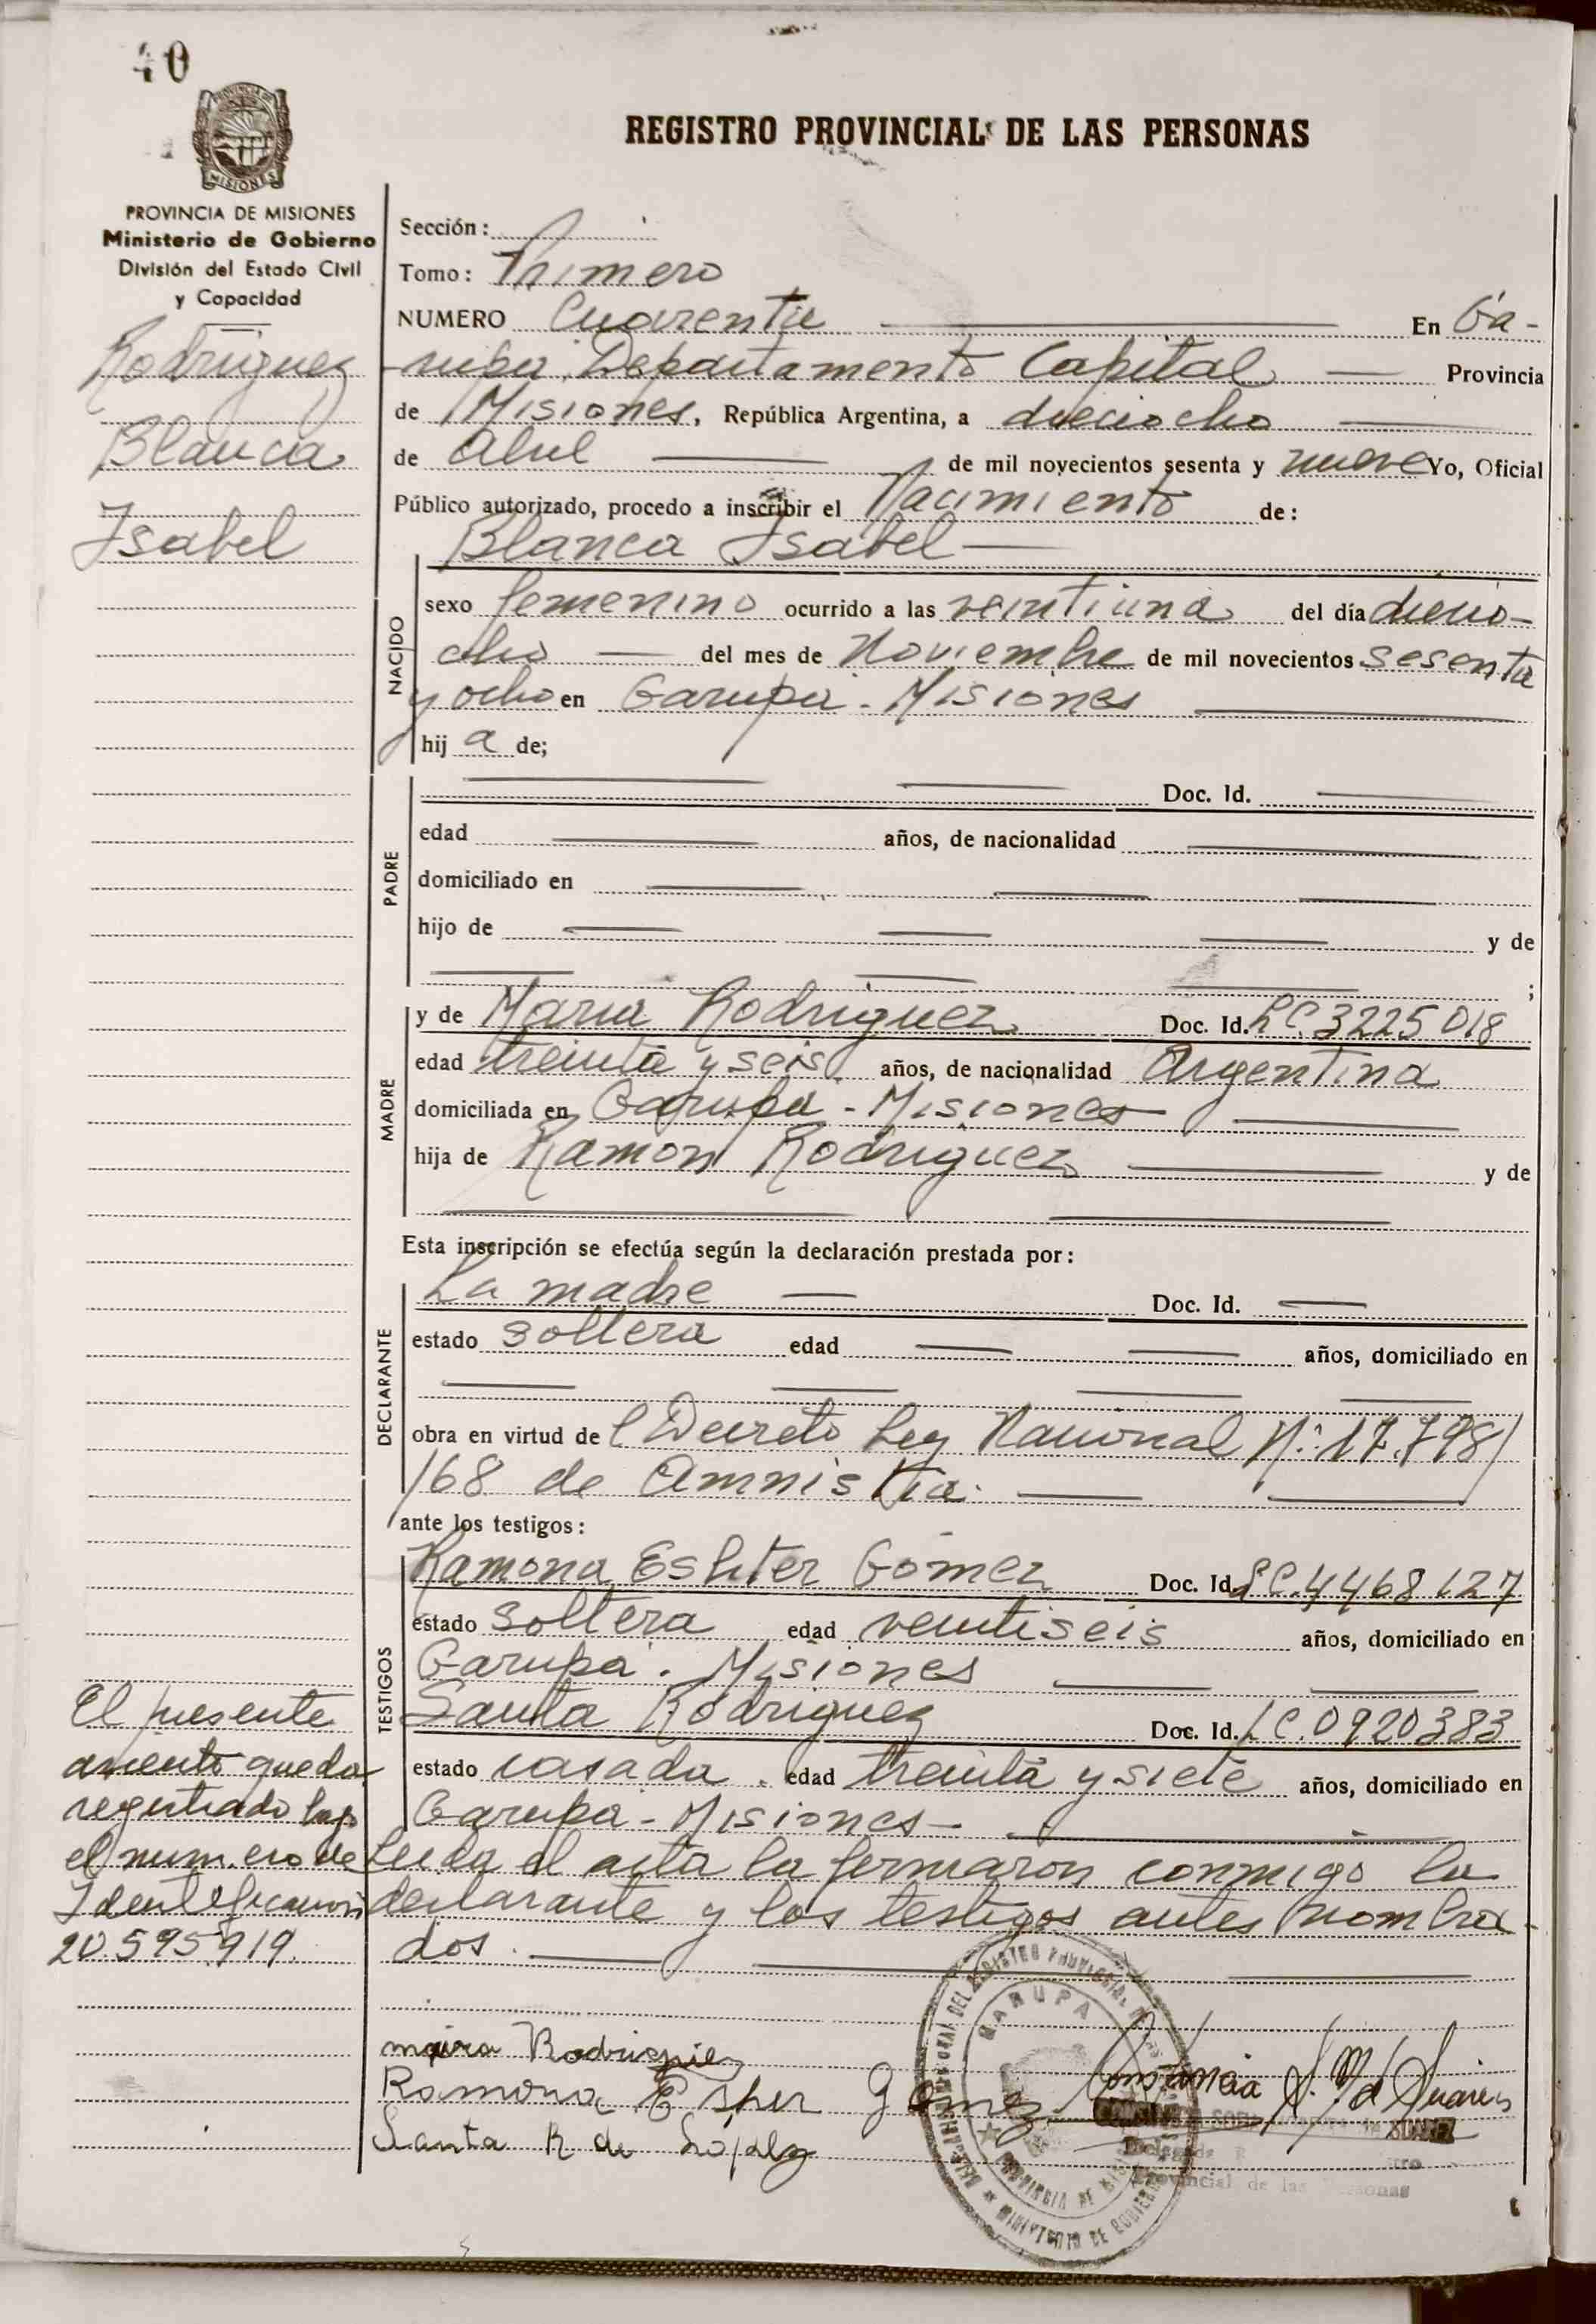 40
MISIONES
REGISTRO PROVINCIAL DE LAS PERSONAS
PROVINCIA DE MISIONES
Ministerio de Gobierno
División del Estado Civil
y Capacidad
Rodríguez
Blanca
Isabel
Sección:
Tomo: Primero
NUMERO Cuarenta En Ga-
rupa, Departamento Capital Provincia
de Misiones, República Argentina, a dieciocho
de Abril de mil novecientos sesenta y nueve Yo, Oficial
Público autorizado, procedo a inscribir el Nacimiento de:
Blanca Isabel
NACIDO
sexo femenino ocurrido a las veintiuna del día diecio-
cho del mes de Noviembre de mil novecientos sesenta
y ocho en Garupa - Misiones
hij a de;
PADRE
Doc. Id.
edad años, de nacionalidad
domiciliado en
hijo de y de
;
MADRE
y de Maria Rodriguez Doc. Id. LC.3225018
edad treinta y seis años, de nacionalidad Argentina
domiciliada en Garupa - Misiones
hija de Ramon Rodriguez y de
Esta inscripción se efectúa según la declaración prestada por:
DECLARANTE
La madre Doc. Id.
estado soltera edad años, domiciliado en
obra en virtud de l Decreto Ley Nacional Nº 17.798/
/68 de Amnistia.
ante los testigos:
TESTIGOS
Ramona Eshter Gómez Doc. Id. LC.4468127
estado soltera edad veintiseis años, domiciliado en
Garupa. Misiones
Santa Rodriguez Doc. Id. LC.0920383
estado casada. edad treinta y siete años, domiciliado en
Garupa - Misiones -
Leida el acta la firmaron conmigo la
declarante y los testigos antes nombra-
dos.
El presente
asiento queda
registrado bajo
el numero de
Identificacion
20.595.919.
maira Rodriguiez
Ramona Esher Gomez
Santa R de
Constancia S. M. d Suarez
SUAREZ
Delegada
Provincial de las Personas
GARUPA
PROVINCIA DE
MINISTERIO DE GOBIERNO